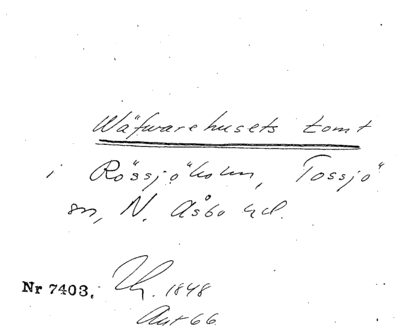 Wäfwarehusets tomt
i Rössjöholm, Tossjö
sn, N. Åsbo hd.
Nr 7403. Th. 1848
Aut 66